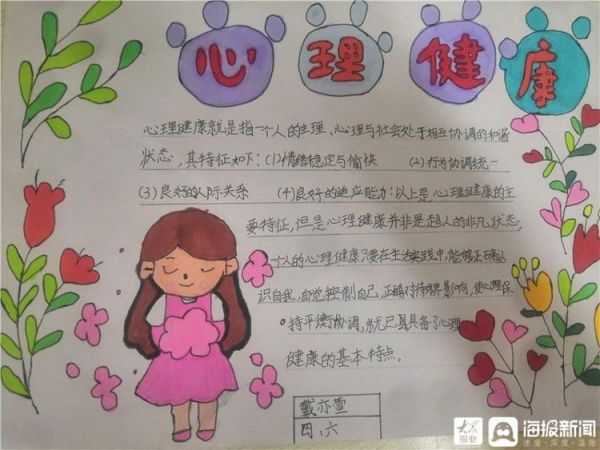 心理健康
心理健康就是指一个人的生理、心理与社会处于相互协调的和谐
状态，其特征如下：(1)情绪稳定与愉快 (2)行为协调统一
(3)良好的人际关系 (4)良好的适应能力：以上是心理健康的主
要特征，但是心理健康并非是超人的非凡状态，
一个人的心理健康只要在生活实践中，能够正确认
识自我，自觉控制自己，正确对待外界影响，使心理保
持平衡协调，就已具备了心理
健康的基本特点。
戴亦萱
四、六
大众报业
海报新闻
速度·深度·温度